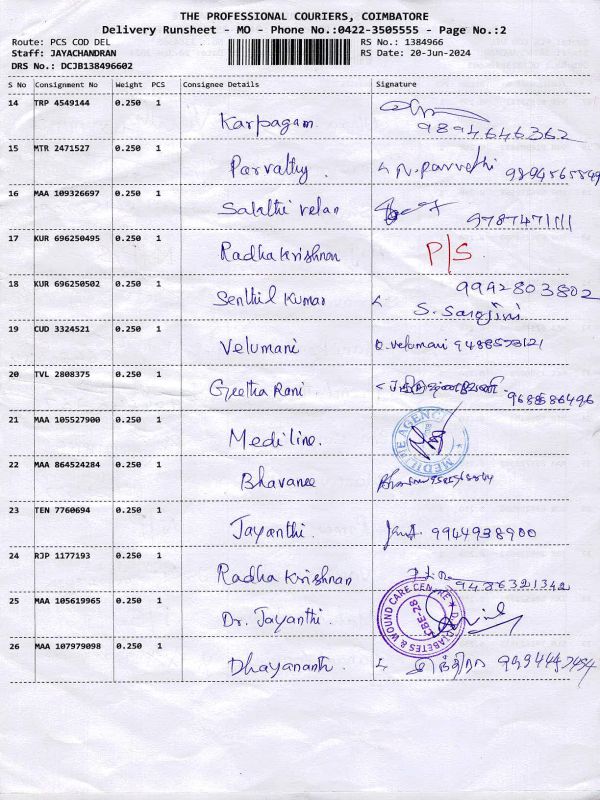 THE PROFESSIONAL COURIERS, COIMBATORE
Delivery Runsheet - MO - Phone No.:0422-3505555 - Page No.:2
Route: PCS COD DEL RS No.: 1384966
Staff: JAYACHANDRAN RS Date: 20-Jun-2024
DRS No.: DCJB138496602
S No Consignment No Weight PCS Consignee Details Signature
14 TRP 4549144 0.250 1 Karpagam 9894646362
15 MTR 2471527 0.250 1 Parvathy. N. Parvathi
16 MAA 109326697 0.250 1 Sakthi velan
17 KUR 696250495 0.250 1 Radha Krishnan P/S
18 KUR 696250502 0.250 1 Senthil Kumar 9942803802
S. Sarojini
19 CUD 3324521 0.250 1 Velumani velumani
20 TVL 2808375 0.250 1 Geetha Rani. 9688586496
21 MAA 105527900 0.250 1 Mediline.
22 MAA 864524284 0.250 1 Bhavanee
23 TEN 7760694 0.250 1 Jayanthi. 9944938900
24 RJP 1177193 0.250 1 Radha Krishnan 9486321342
25 MAA 105619965 0.250 1 Dr. Jayanthi. DIABETES & WOUND CARE CENTRE CBE-28
26 MAA 107979098 0.250 1 Dhayananth.